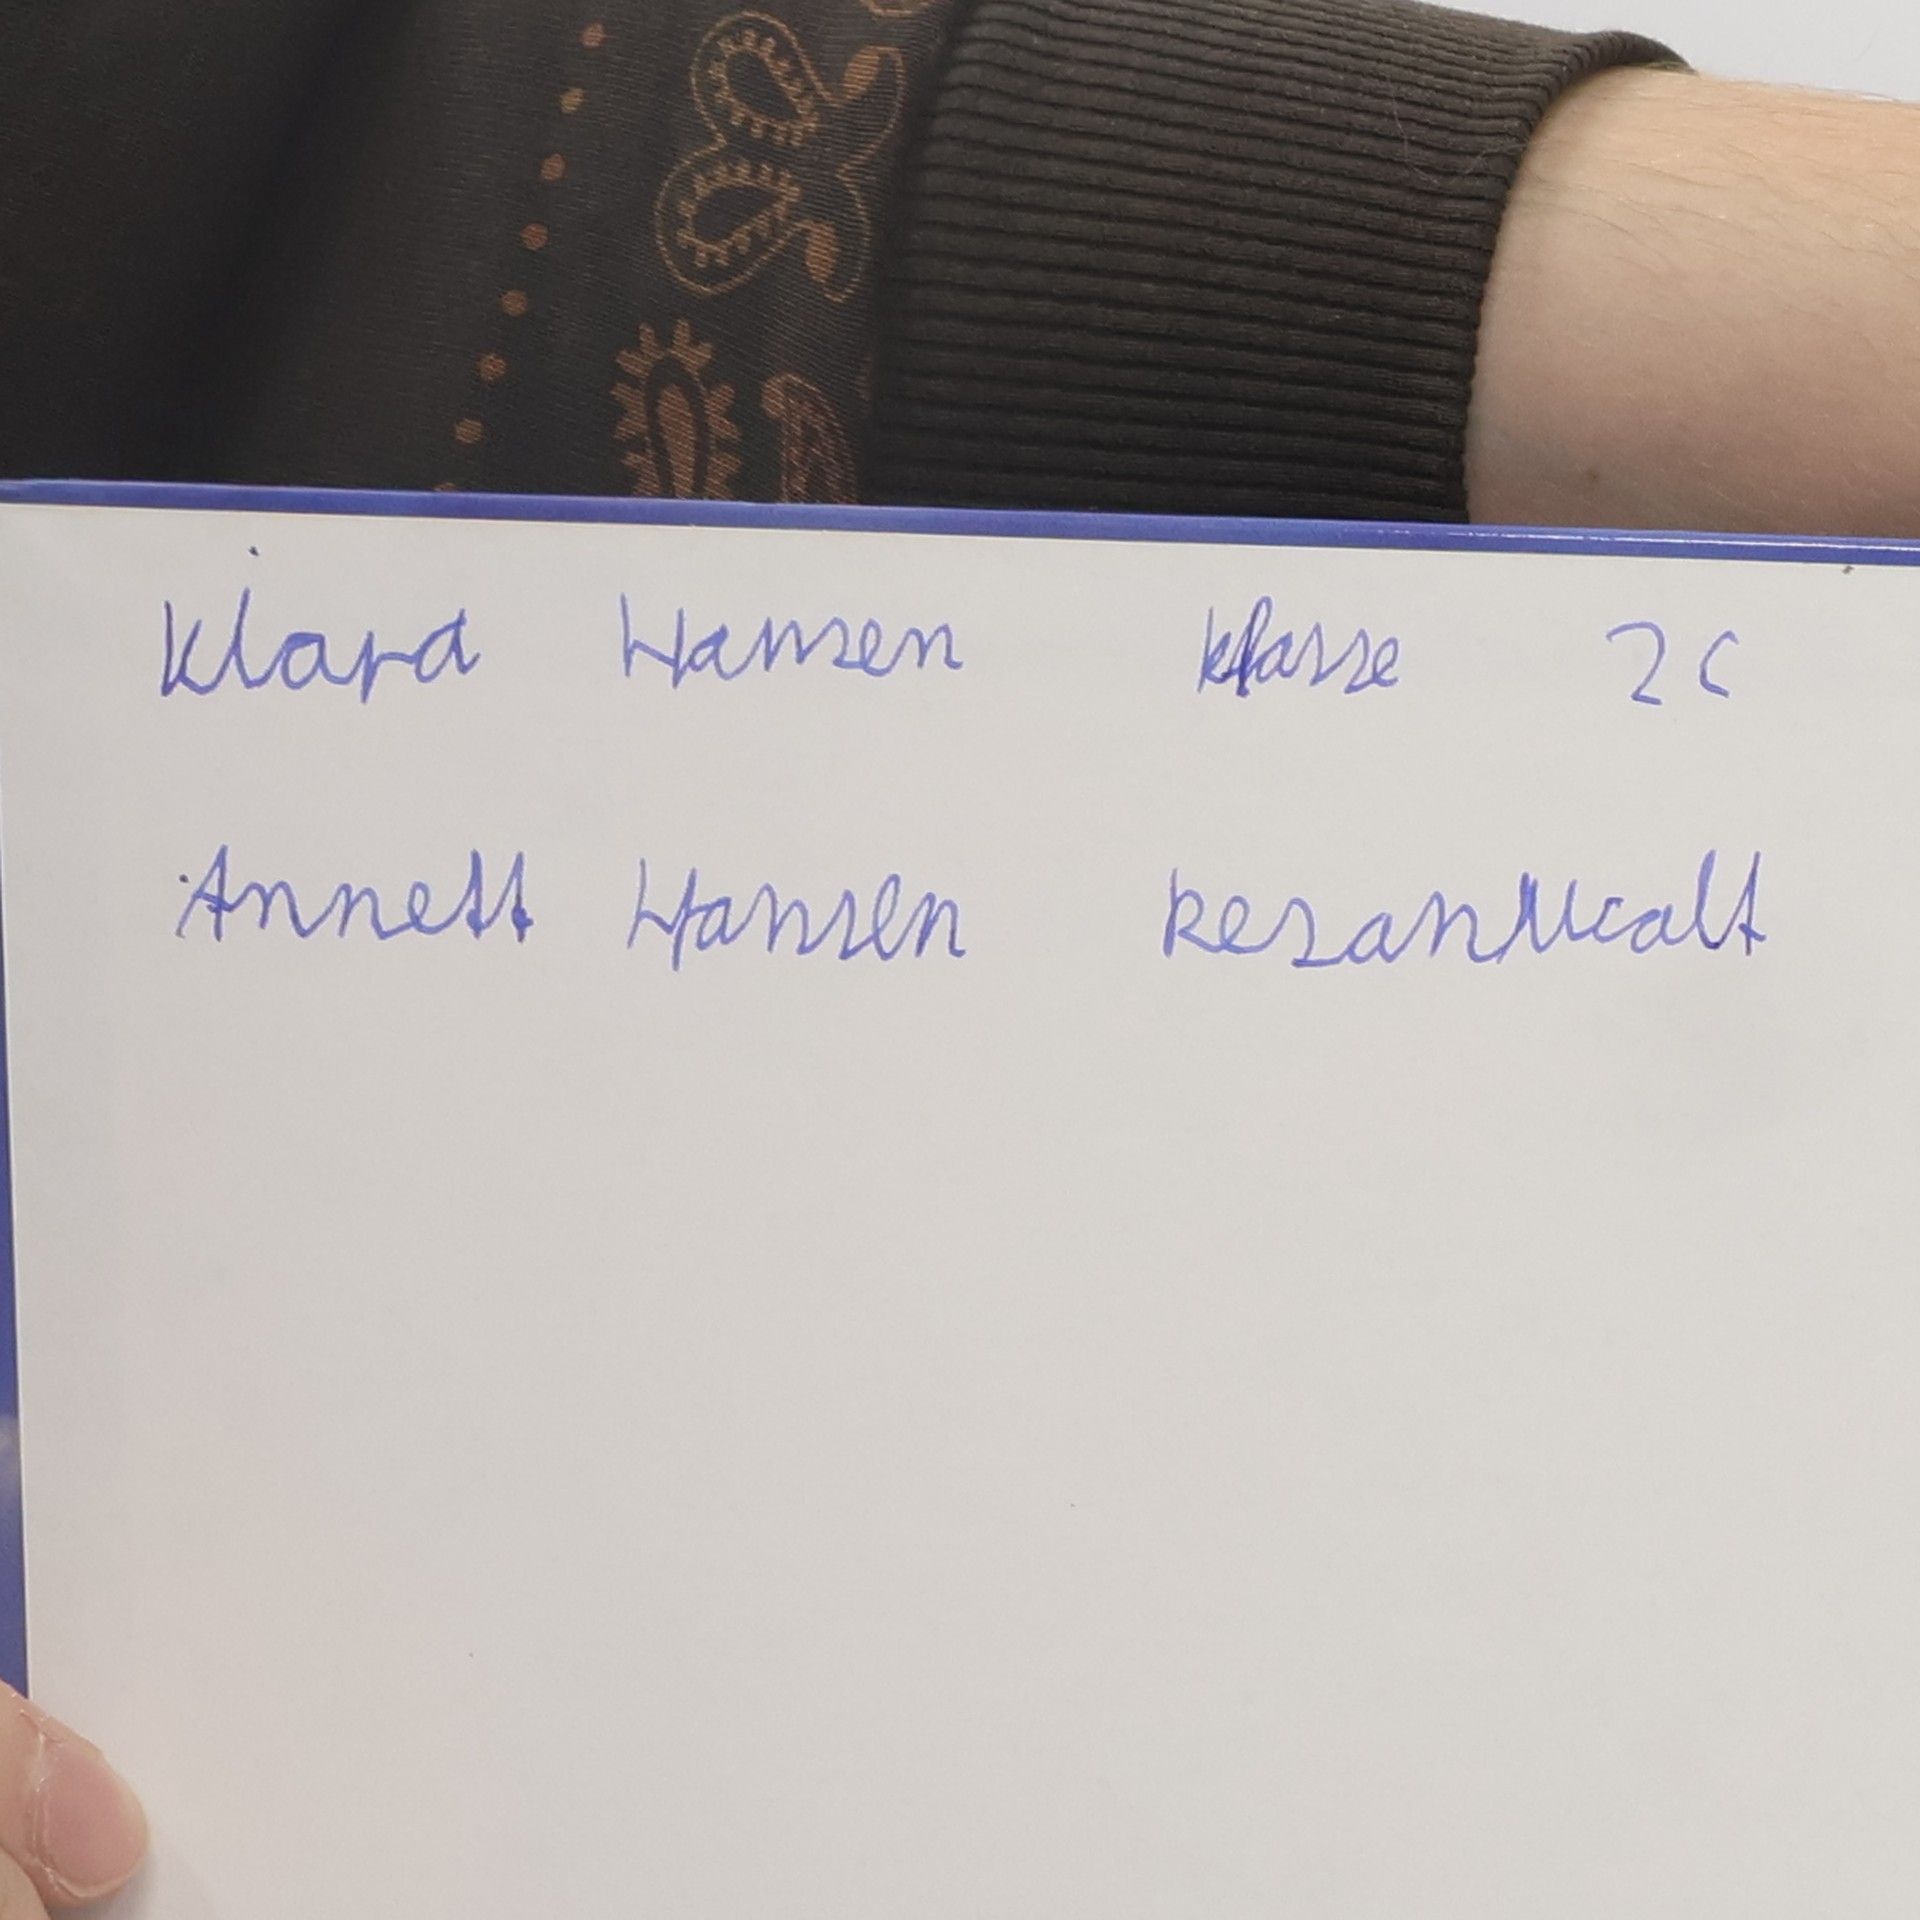 Klara Hansen Klasse 2c
Annett Hansen